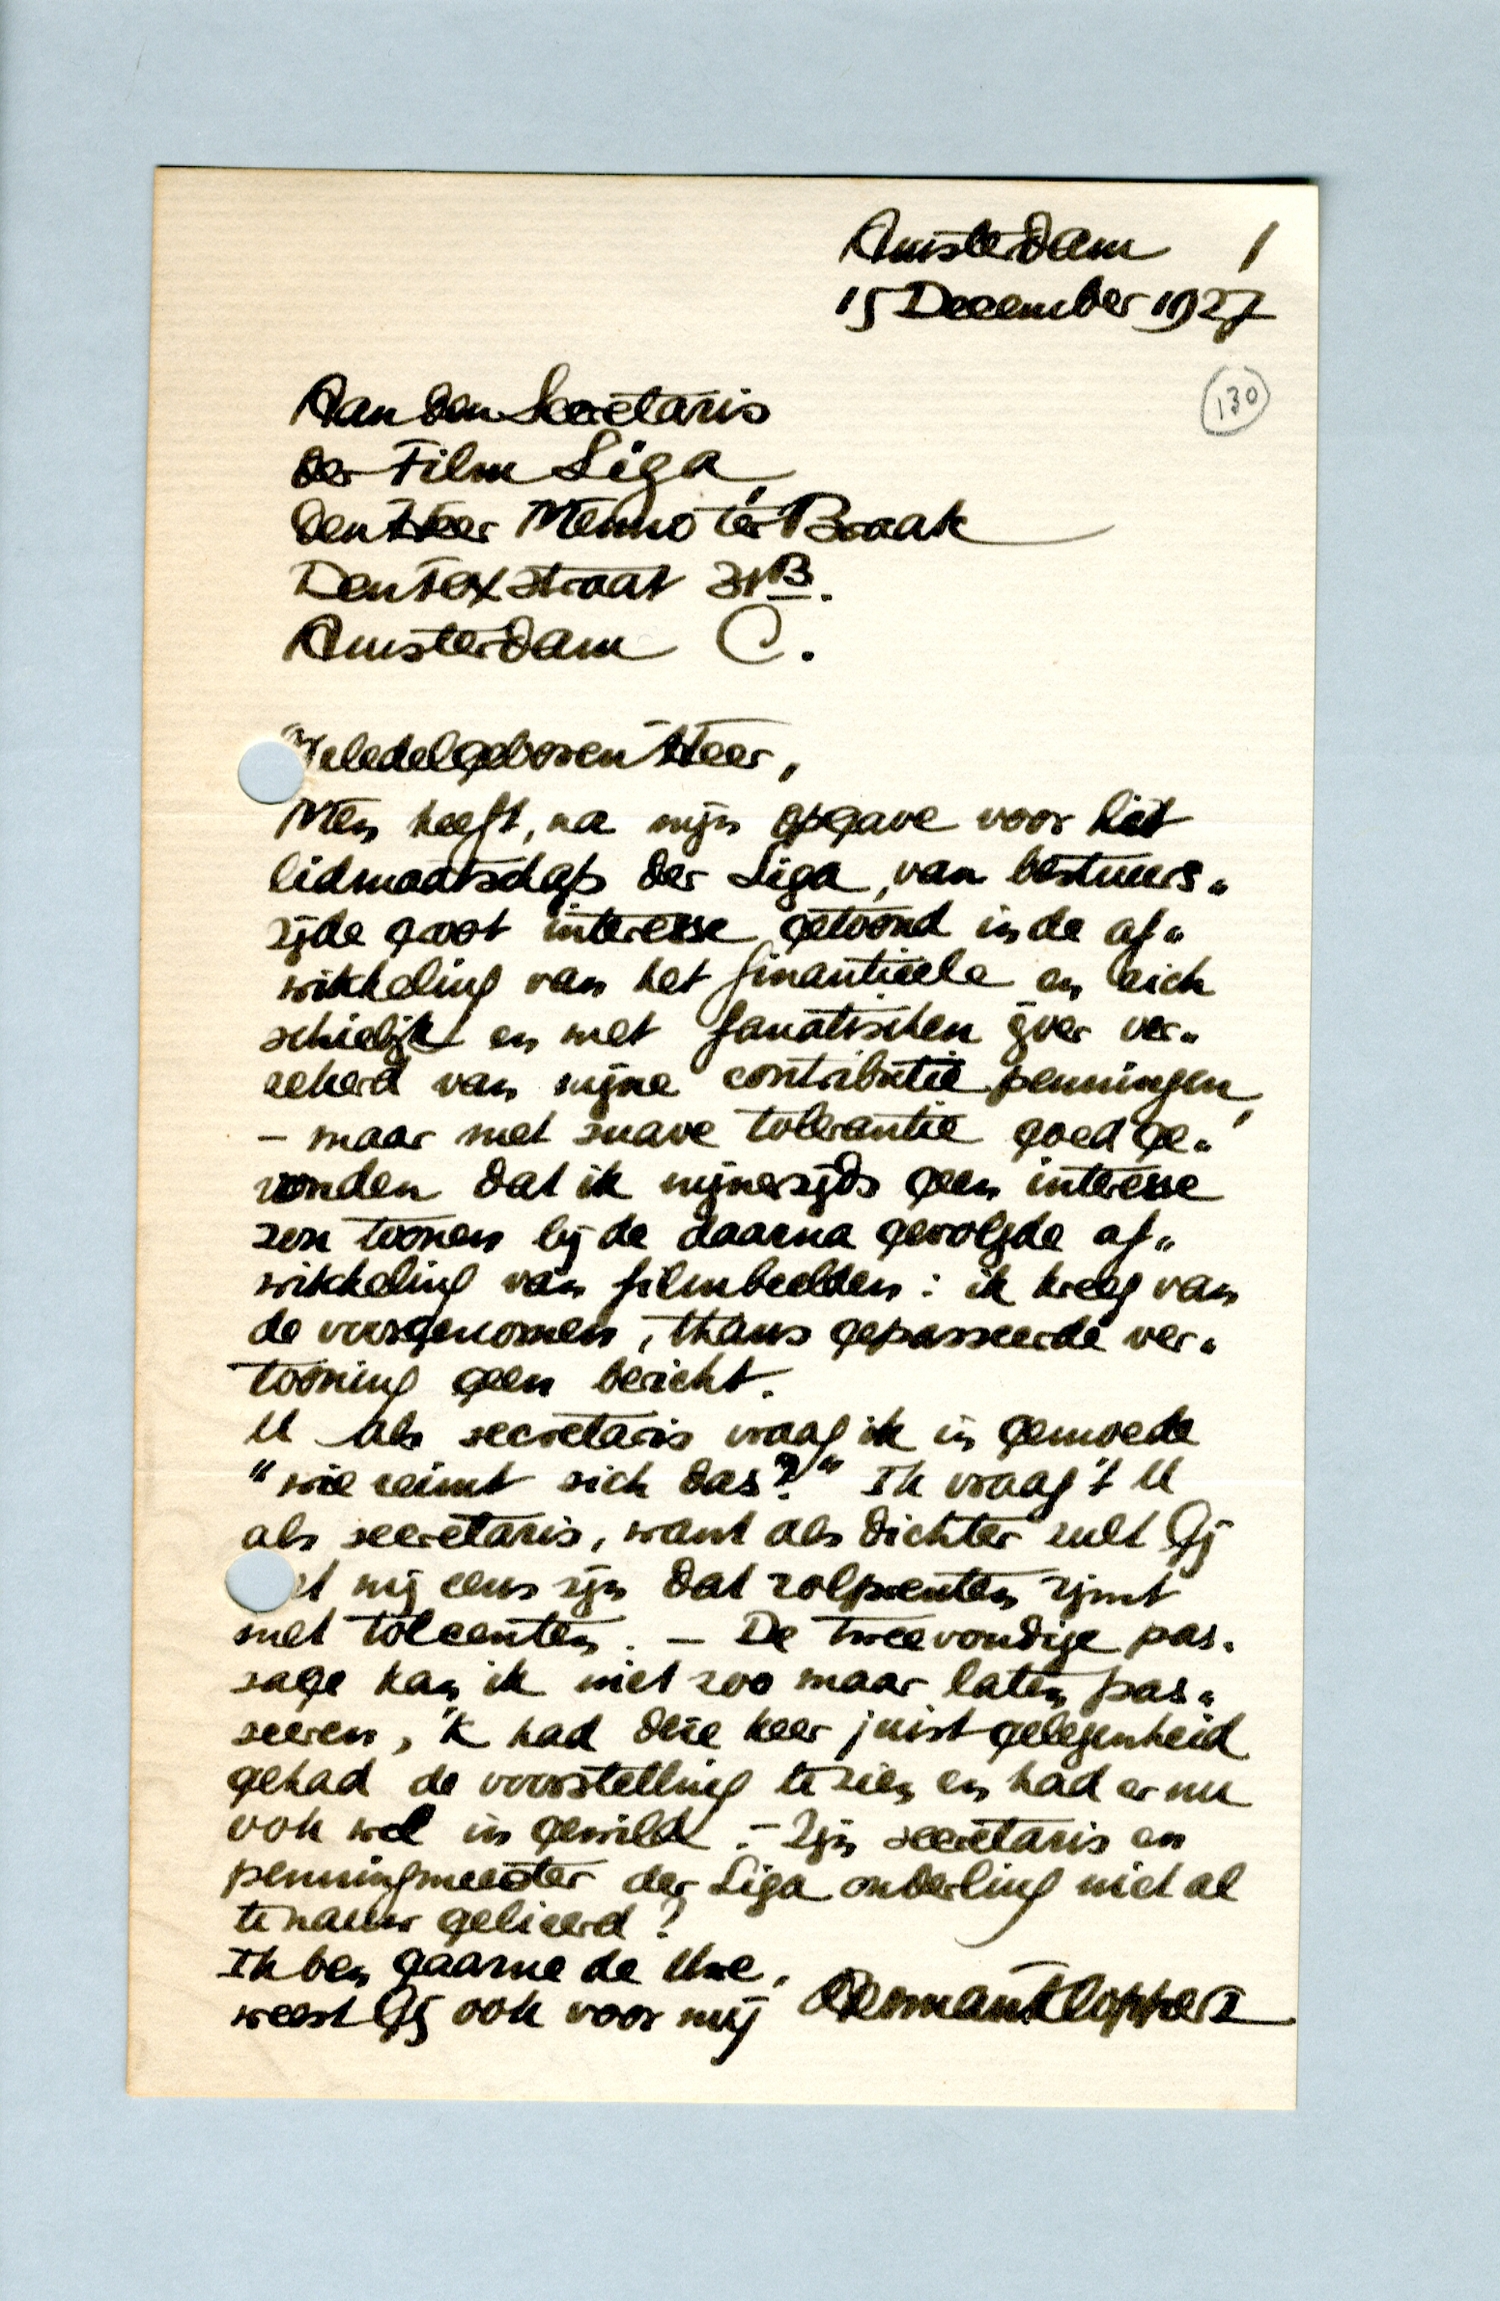 Amsterdam 1
15 December 1927
130
Aan den Secretaris
der Film Liga,
den Heer Menno ter Braak
Den Texstraat 31B.
Amsterdam C.
Weledelgeboren Heer,
Men heeft, na mijn opgave voor het
lidmaatschap der Liga, van bestuurs„
zijde groot interesse getoond in de af„
wikkeling van het finantieele en zich
schielijk en met fanatischen ijver ver„
zekerd van mijne contributie penningen,
– maar met suave tolerantie goed ge„
vonden dat ik mijnerzijds geen interesse
zou toonen bij de daarna gevolgde af„
wikkeling van filmbeelden: ik kreeg van
de voorgenomen, thans gepasseerde ver„
tooning geen bericht.
U als secretaris vraag ik in gemoede
"wie reimt sich das?" Ik vraag 't U
als secretaris, want als dichter zult Gij
et mij eens zijn dat rolprenten rijmt
met tolcenten. – De tweevoudige pas„
sage kan ik niet zoo maar laten pas„
seeren, 'k had deze keer juist gelegenheid
gehad de voorstelling te zien en had er nu
ook wel in gewild. – Zijn secretaris en
penningmeester der Liga onderling niet al
te nauw gelieerd?
Ik ben gaarne de Uwe,
weest Gij ook voor mij Herman Kloppers